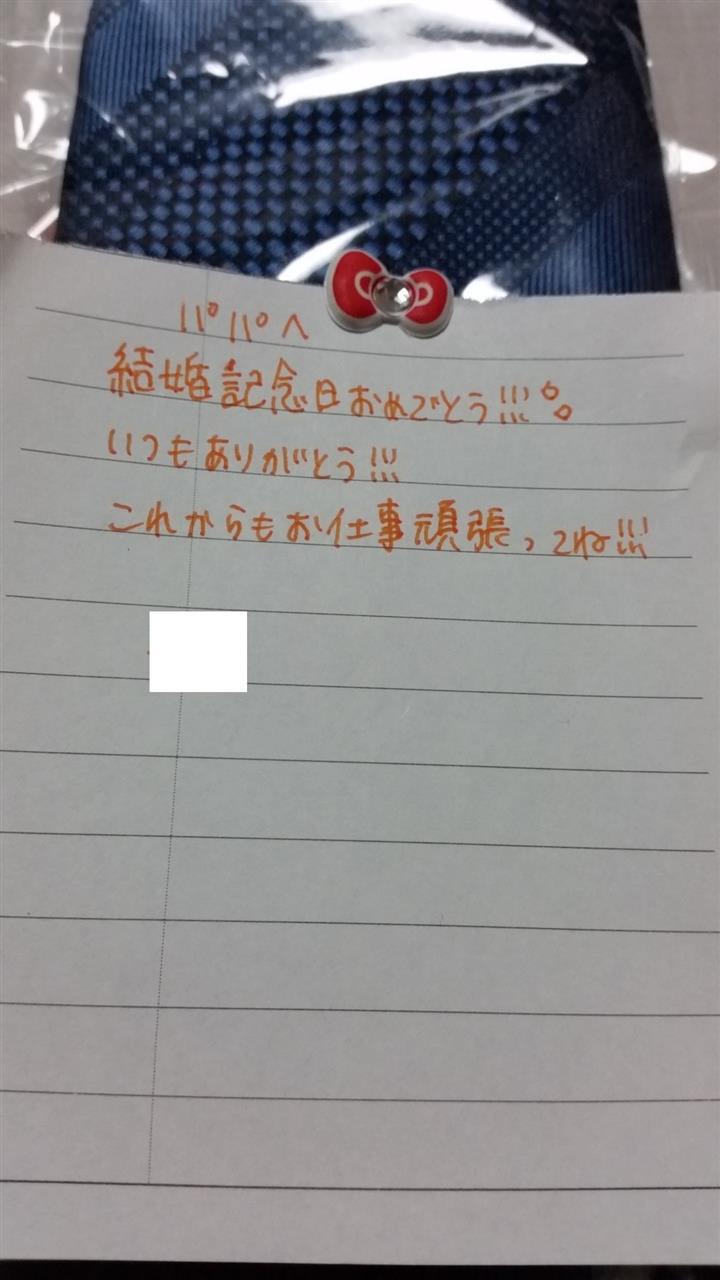 パパへ
結婚記念日おめでとう!!!。。
いつもありがとう!!!
これからもお仕事頑張ってね!!!